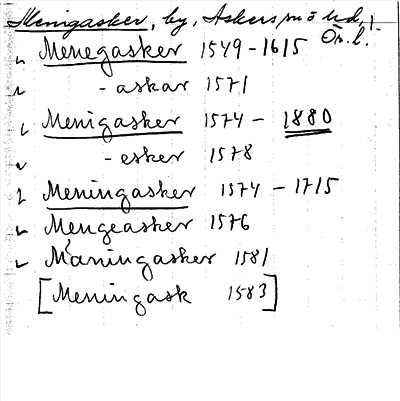 Menigasker, by, Askers sn o hd,
Ör. l.
Menegasker 1549-1615
- askar 1571
Menigasker 1574 - 1880
- esker 1578
Meningasker 1574 - 1715
Mengeasker 1576
Maningasker 1581
[Meningask 1583]